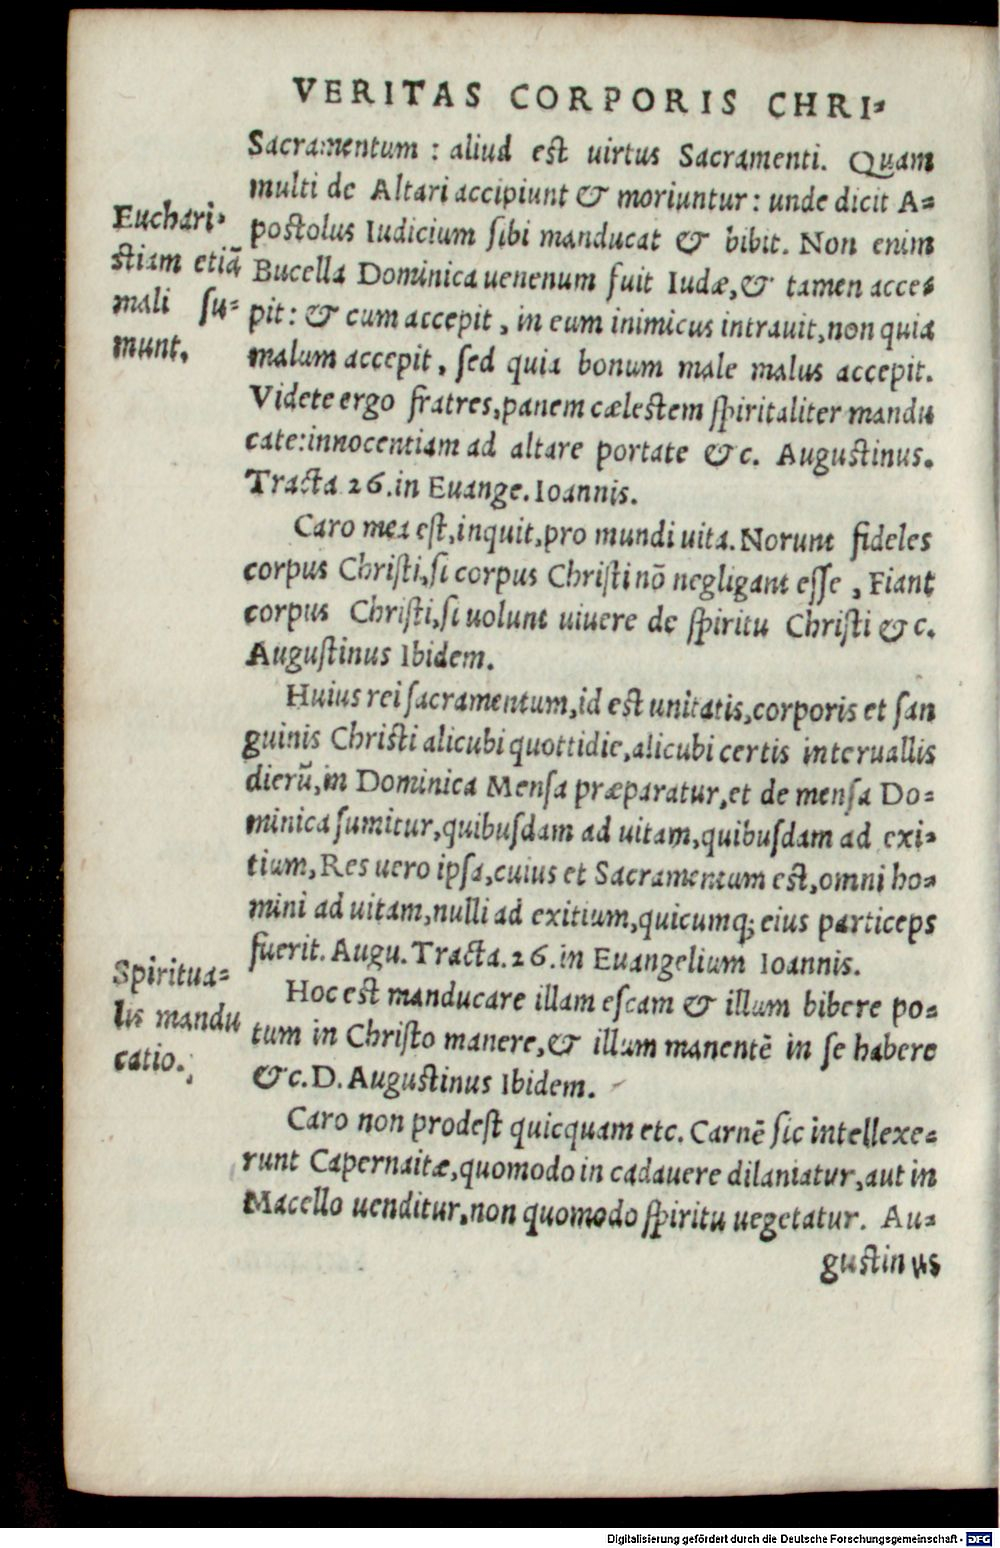 VERITAS CORPORIS CHRI⸗
Sacramentum : aliud est uirtus Sacramenti. Quam
multi de Altari accipiunt & moriuntur : unde dicit A⸗
postolus Iudicium ſibi manducat & bibit. Non enim
Bucella Dominica uenenum fuit Iudæ, & tamen acce⸗
pit : & cum accepit, in eum inimicus intrauit, non quia
malum accepit, ſed quia bonum male malus accepit.
Videte ergo fratres, panem cælestem ſpiritaliter mandu
cate: innocentiam ad altare portate &c. Augustinus.
Tracta 26. in Euange. Ioannis.
Euchari⸗
stiam etiā
mali ſu⸗
munt.
Caro mea eſt, inquit, pro mundi uita. Norunt fideles
corpus Chriſti, ſi corpus Chriſti nō negligant eſſe, Fiant
corpus Chriſti, ſi uolunt uiuere de ſpiritu Chriſti &c.
Auguſtinus Ibidem.
Huius rei ſacramentum, id est unitatis, corporis et ſan
guinis Christi alicubi quottidie, alicubi certis interuallis
dierū, in Dominica Menſa præparatur, et de menſa Do⸗
minica ſumitur, quibuſdam ad uitam, quibuſdam ad exi⸗
tium, Res uero ipſa, cuius et Sacramentum est, omni ho⸗
mini ad uitam, nulli ad exitium, quicumq; eius particeps
fuerit. Augu. Tracta. 26. in Euangelium Ioannis.
Hoc est manducare illam eſcam & illum bibere po⸗
tum in Chriſto manere, & illum manentē in ſe habere
&c. D. Augustinus Ibidem.
Spiritua⸗
lis mandu
catio.
Caro non prodeſt quicquam etc. Carnē ſic intellexe⸗
runt Capernaitæ, quomodo in cadauere dilaniatur, aut in
Macello uenditur, non quomodo ſpiritu uegetatur. Au⸗
gustinus
Digitalisierung gefördert durch die Deutsche Forschungsgemeinschaft - DFG